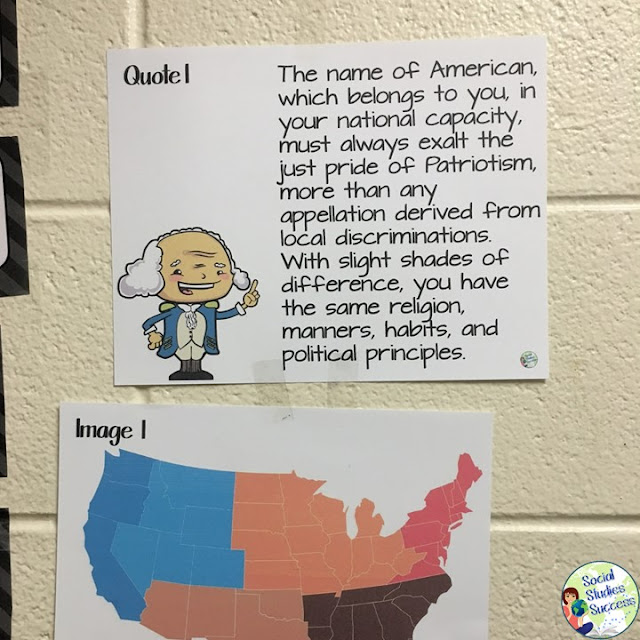 Quote 1
The name of American,
which belongs to you, in
your national capacity,
must always exalt the
just pride of Patriotism,
more than any
appellation derived from
local discriminations.
With slight shades of
difference, you have
the same religion,
manners, habits, and
political principles.
Image 1
Social
Studies
Success